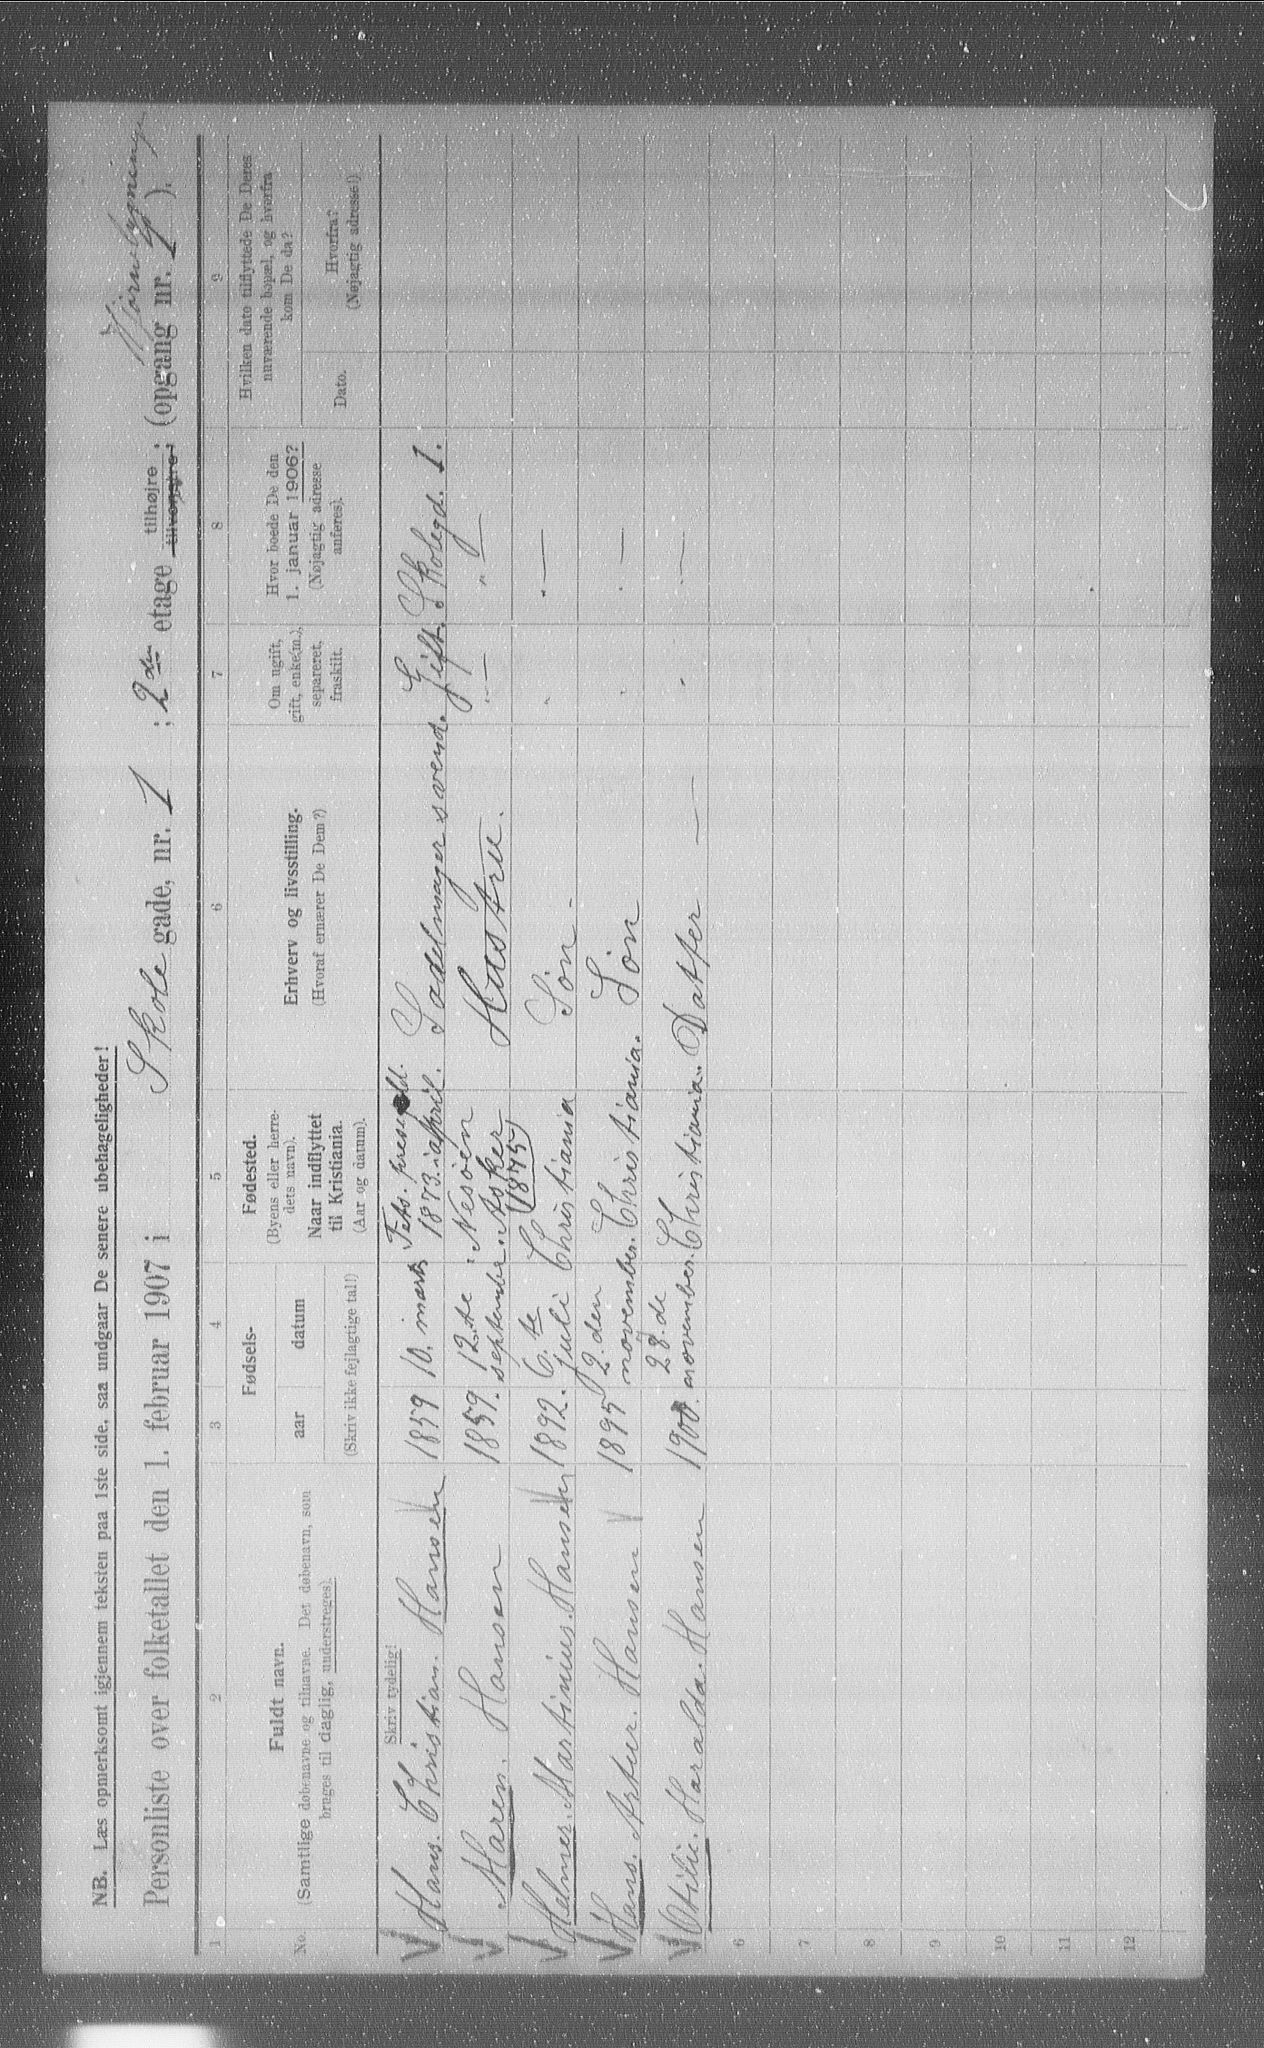 NB. Læs opmerksomt igjennem teksten paa 1ste side, saa undgaar De senere ubehageligheder!
Hjørnebygningen
Personliste over folketallet den 1. februar 1907 i Skole gade, nr. 1 ; 2den etage tilhøjre ; (opgang nr. 1).
tilvenstre
1 2 3 4 5 6 7 8 9
No.
Fuldt navn.
(Samtlige døbenavne og tilnavne. Det døbenavn, som
bruges til daglig, understreges).
Fødsels-
aar datum
(Skriv ikke fejlagtige tal!)
Fødested.
(Byens eller herre-
dets navn).
Naar indflyttet
til Kristiania.
(Aar og datum).
Erhverv og livsstilling.
(Hvoraf ernærer De Dem?)
Om ugift,
gift, enke(m.),
separeret,
fraskilt.
Hvor boede De den
1. januar 1906?
(Nøjagtig adresse
anføres).
Hvilken dato tilflyttede De Deres
nuværende bopæl, og hvorfra
kom De da?
Dato.
Hvorfra?
(Nøjagtig adresse!)
Skriv tydelig!
1 Hans. Christian. Hansen 1859 10. marts Fets. presegld. 1873. april. Sadelmager svend. Gift. Skolegd. 1.
2 Maren. Hansen 1859. 12.te september. Nesöen Asker (1875) Hustru. " — " —
3 Helmer. Martinius. Hansen 1892. 6.te juli Christiania Sön - " . —
4 Hans. Artur. Hansen 1895 2.den november. Christiania. Sön " . —
5 Otilie. Haralda. Hansen 1900. 28.de november. Christiania. Datter — " . —
6
7
8
9
10
11
12